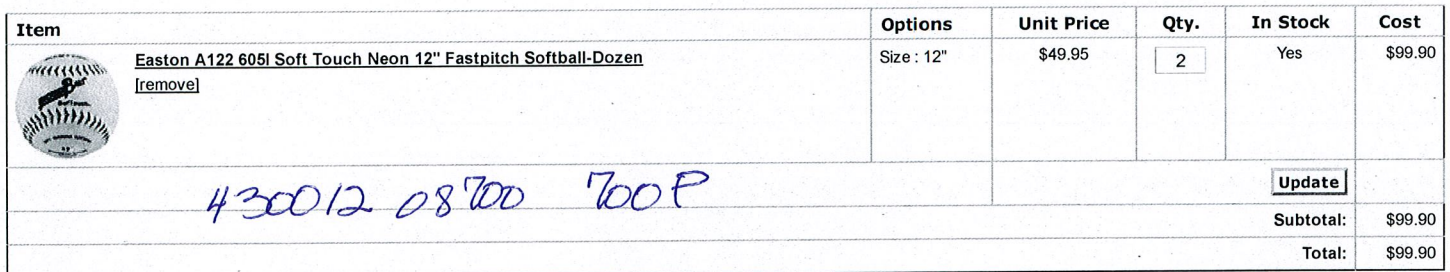 Item Options Unit Price Qty. In Stock Cost
Easton A122 605I Soft Touch Neon 12" Fastpitch Softball-Dozen Size : 12" $49.95 2 Yes $99.90
[remove]
430012 08700 700P
Update
Subtotal: $99.90
Total: $99.90